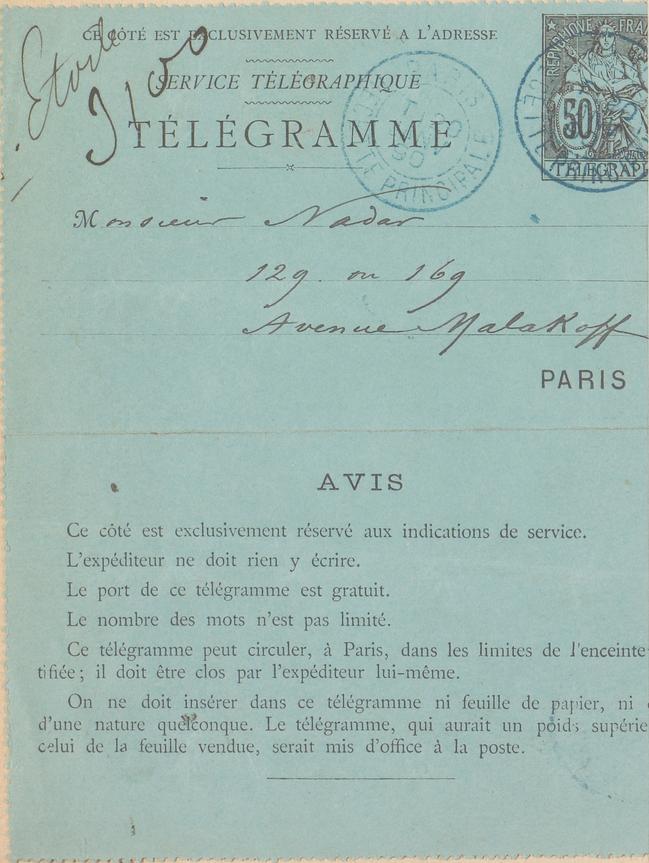 CE CÔTÉ EST EXCLUSIVEMENT RÉSERVÉ A L'ADRESSE
Etoile
SERVICE TÉLÉGRAPHIQUE
TÉLÉGRAMME
PARIS
TE PRINCIPALE
REPUBLIQUE FRAN
50
TELEGRAP
Monsieur Nadar
129 ou 169
Avenue Malakoff
PARIS
AVIS
Ce côté est exclusivement réservé aux indications de service.
L'expéditeur ne doit rien y écrire.
Le port de ce télégramme est gratuit.
Le nombre des mots n'est pas limité.
Ce télégramme peut circuler, à Paris, dans les limites de l'enceinte
tifiée; il doit être clos par l'expéditeur lui-même.
On ne doit insérer dans ce télégramme ni feuille de papier, ni
d'une nature quelconque. Le télégramme, qui aurait un poids supérie
celui de la feuille vendue, serait mis d'office à la poste.